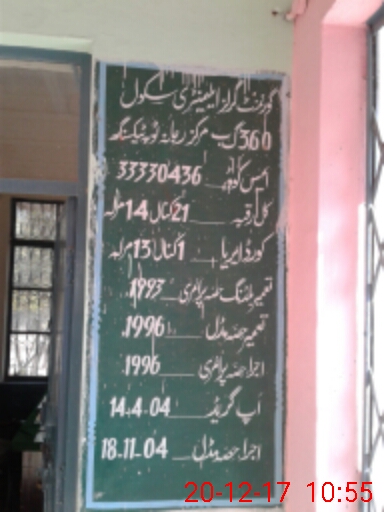 گورنمنٹ گرلز ایلیمنٹری سکول
360 گ ب مرکز رجانہ ٹوبہ ٹیک سنگھ
ایمس کوڈ 33330436
کل رقبہ 21 کنال 14 مرلہ
کورڈ ایریا 1 کنال 13 مرلہ
تعمیر بلڈنگ حصہ پرائمری 1993
تعمیر حصہ مڈل 1996
اجرا حصہ پرائمری 1996
اپ گریڈ 14.4.04
اجرا حصہ مڈل 18.11.04
20-12-17 10:55